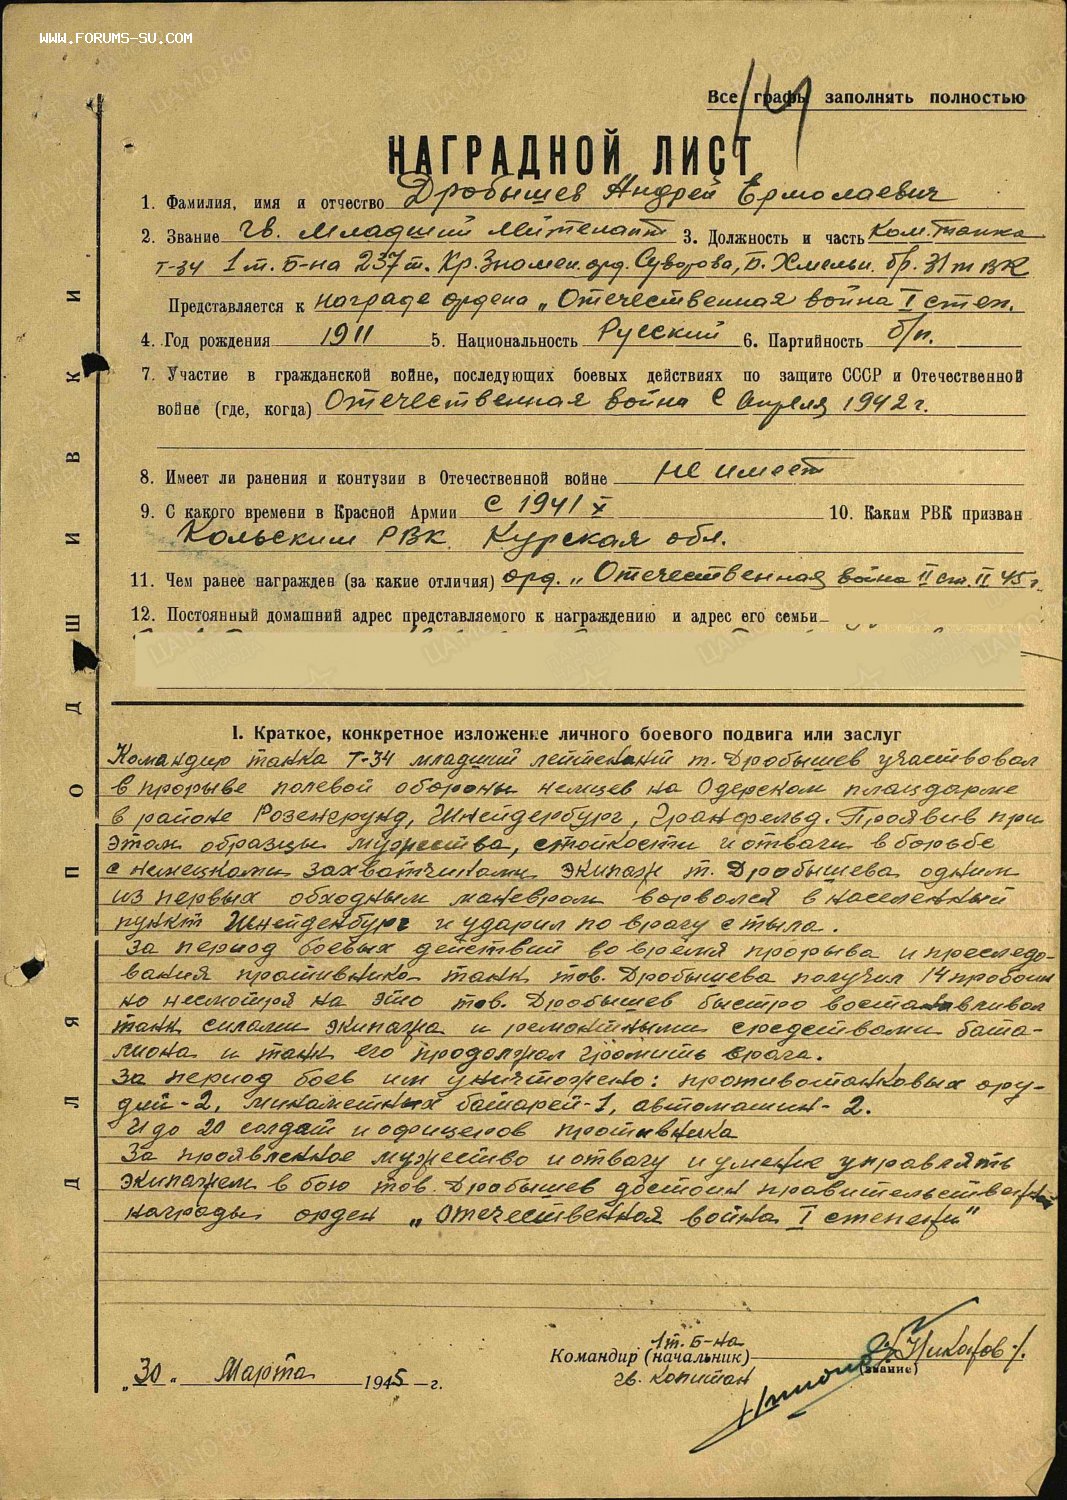 WWW.FORUMS-SU.COM
Все графы заполнять полностью
НАГРАДНОЙ ЛИСТ
1. Фамилия, имя и отчество Дробышев Андрей Ермолаевич
2. Звание гв. младший лейтенант 3. Должность и часть Ком. танка
Т-34 1 т. б-на 237 т. Кр. Знамен. орд. Суворова, Б. Хмельн. бр. 31 т ВК
Представляется к награде ордена „Отечественная война I степ.
4. Год рождения 1911 5. Национальность Русский 6. Партийность б/п.
7. Участие в гражданской войне, последующих боевых действиях по защите СССР и Отечественной
войне (где, когда) Отечественная война с апреля 1942 г.
8. Имеет ли ранения и контузии в Отечественной войне не имеет
9. С какого времени в Красной Армии с 1941 X 10. Каким РВК призван
Кольским РВК Курская обл.
11. Чем ранее награжден (за какие отличия) орд. „Отечественная война II ст. II 45 г
12. Постоянный домашний адрес представляемого к награждению и адрес его семьи
I. Краткое, конкретное изложение личного боевого подвига или заслуг
Командир танка Т-34 младший лейтенант т. Дробышев участвовал
в прорыве полевой обороны немцев на Одерском плацдарме
в районе Розенгрунд, Шнейдербург, Гранфельд. Проявив при
этом образцы мужества, стойкости и отваги в борьбе
с немецкими захватчиками экипаж т. Дробышева одним
из первых обходным маневром ворвался в населенный
пункт Шнейденбург и ударил по врагу с тыла.
За период боевых действий во время прорыва и преследо-
вания противника танк тов. Дробышева получил 14 пробоин
но несмотря на это тов. Дробышев быстро востанавливал
танк силами экипажа и ремонтными средствами бата-
лиона и танк его продолжал громить врага.
За период боев им уничтожено: противотанковых ору-
дий-2, минометных батарей-1, автомашин-2.
и до 20 солдат и офицеров противника
За проявленное мужество и отвагу и умение управлять
экипажем в бою тов. Дробышев достоин правительственной
награды орден „Отечественная война I степени"
1 т. б-на
Командир (начальник) Никонов
гв. капитан (звание)
„30" Марта 1945 г.
ДЛЯ ПОДШИВКИ